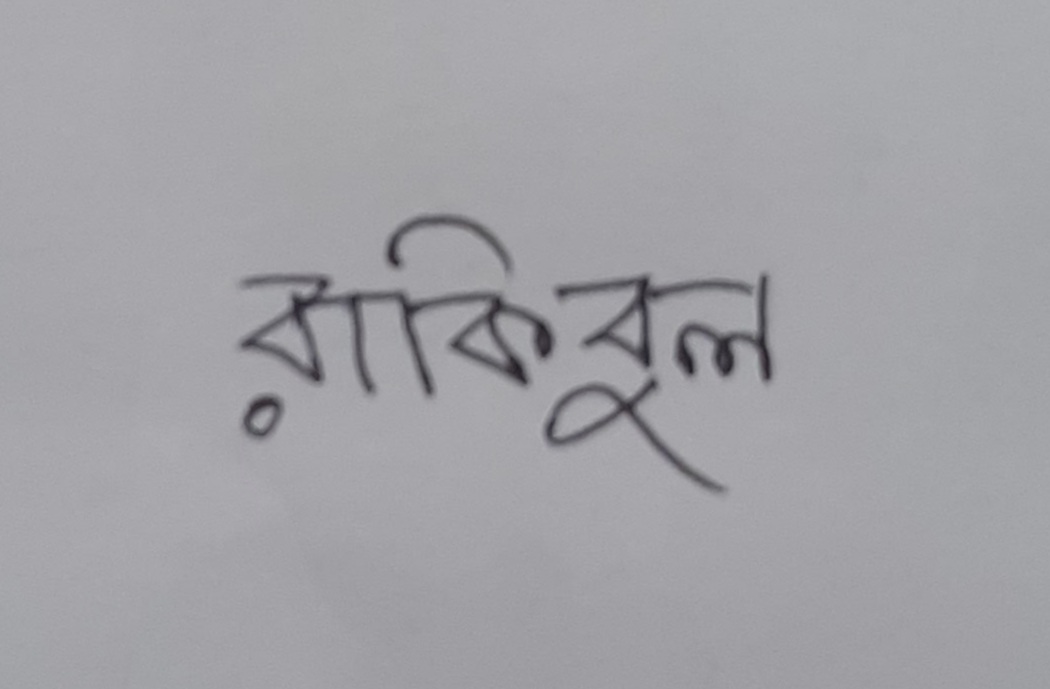 রাকিবুল